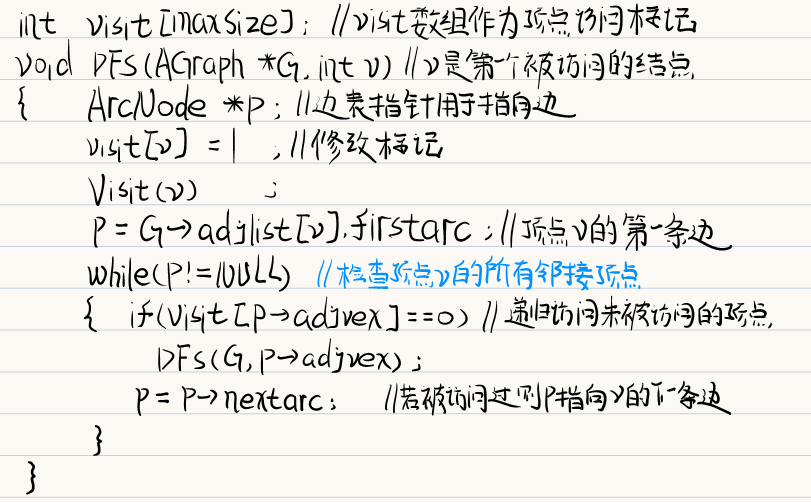 int visit[maxSize]; //visit数组作为顶点访问标记
void DFS(AGraph *G, int v) //v是第一个被访问的结点
{ ArcNode *p; //边表指针用于指向边
visit[v] = 1 ; //修改标记
Visit(v) ;
p = G→adjlist[v].firstarc; //顶点v的第一条边
while(p!=NULL) //检查顶点v的所有邻接顶点
{ if(visit[p→adjvex]==0) //递归访问未被访问的顶点,
DFS(G, p→adjvex);
p = p→nextarc; //若被访问过则p指向v的下一条边
}
}